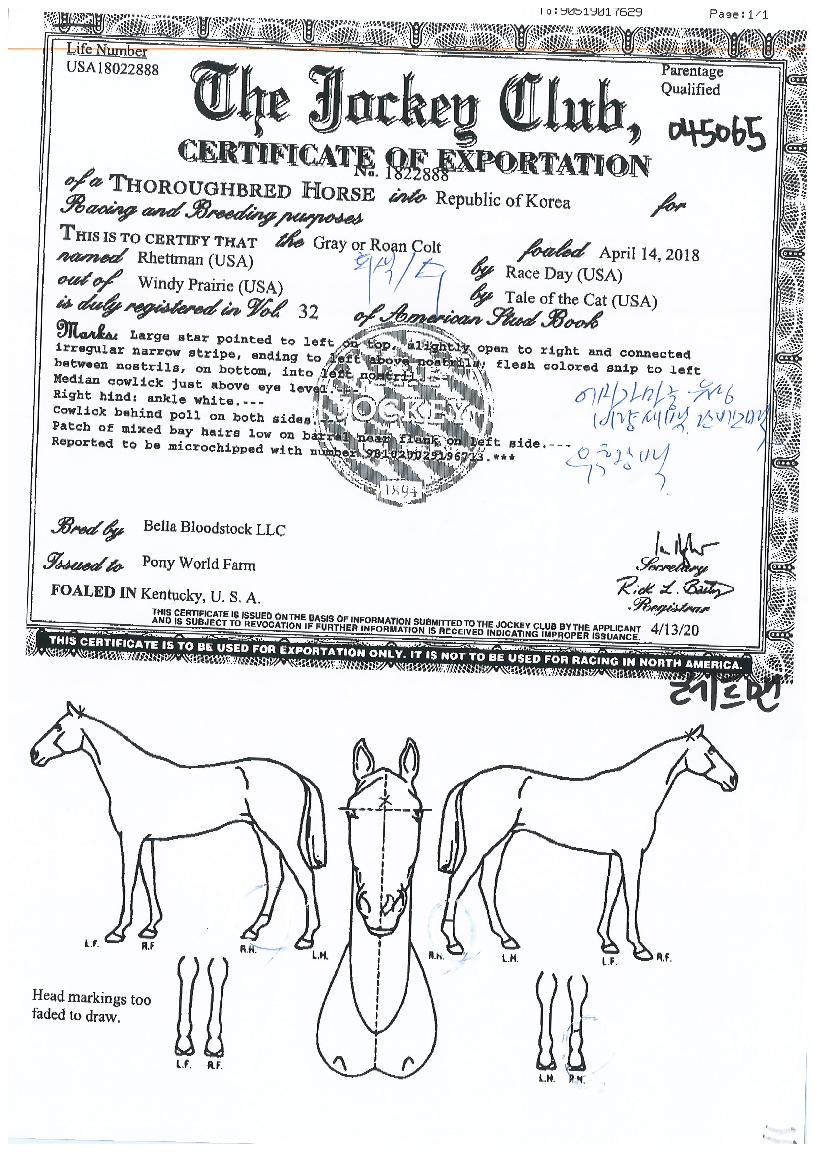 To:90519017629 Page:1/1
Life Number
USA18022888
Parentage
Qualified
The Jockey Club,
045065
CERTIFICATE OF EXPORTATION
No. 1822888
of a THOROUGHBRED HORSE into Republic of Korea for
Racing and Breeding purposes
THIS IS TO CERTIFY THAT the Gray or Roan Colt foaled April 14, 2018
named Rhettman (USA) by Race Day (USA)
out of Windy Prairie (USA) by Tale of the Cat (USA)
is duly registered in Vol. 32 of American Stud Book
Marks: Large star pointed to left on top, slightly open to right and connected
irregular narrow stripe, ending to left above nostrils; flesh colored snip to left
between nostrils, on bottom, into left nostril.---
Median cowlick just above eye level.---
Right hind: ankle white.---
Cowlick behind poll on both sides.
Patch of mixed bay hairs low on barrel near flank on left side.---
Reported to be microchipped with number
JOCKEY
1894
Bred by Bella Bloodstock LLC
Issued to Pony World Farm
Secretary
Registrar
FOALED IN Kentucky, U. S. A.
THIS CERTIFICATE IS ISSUED ON THE BASIS OF INFORMATION SUBMITTED TO THE JOCKEY CLUB BY THE APPLICANT
AND IS SUBJECT TO REVOCATION IF FURTHER INFORMATION IS RECEIVED INDICATING IMPROPER ISSUANCE. 4/13/20
THIS CERTIFICATE IS TO BE USED FOR EXPORTATION ONLY. IT IS NOT TO BE USED FOR RACING IN NORTH AMERICA.
레트맨
L.F. R.F. R.H. L.H. R.H. L.H. L.F. R.F.
Head markings too
faded to draw.
L.F. R.F. L.H. R.H.